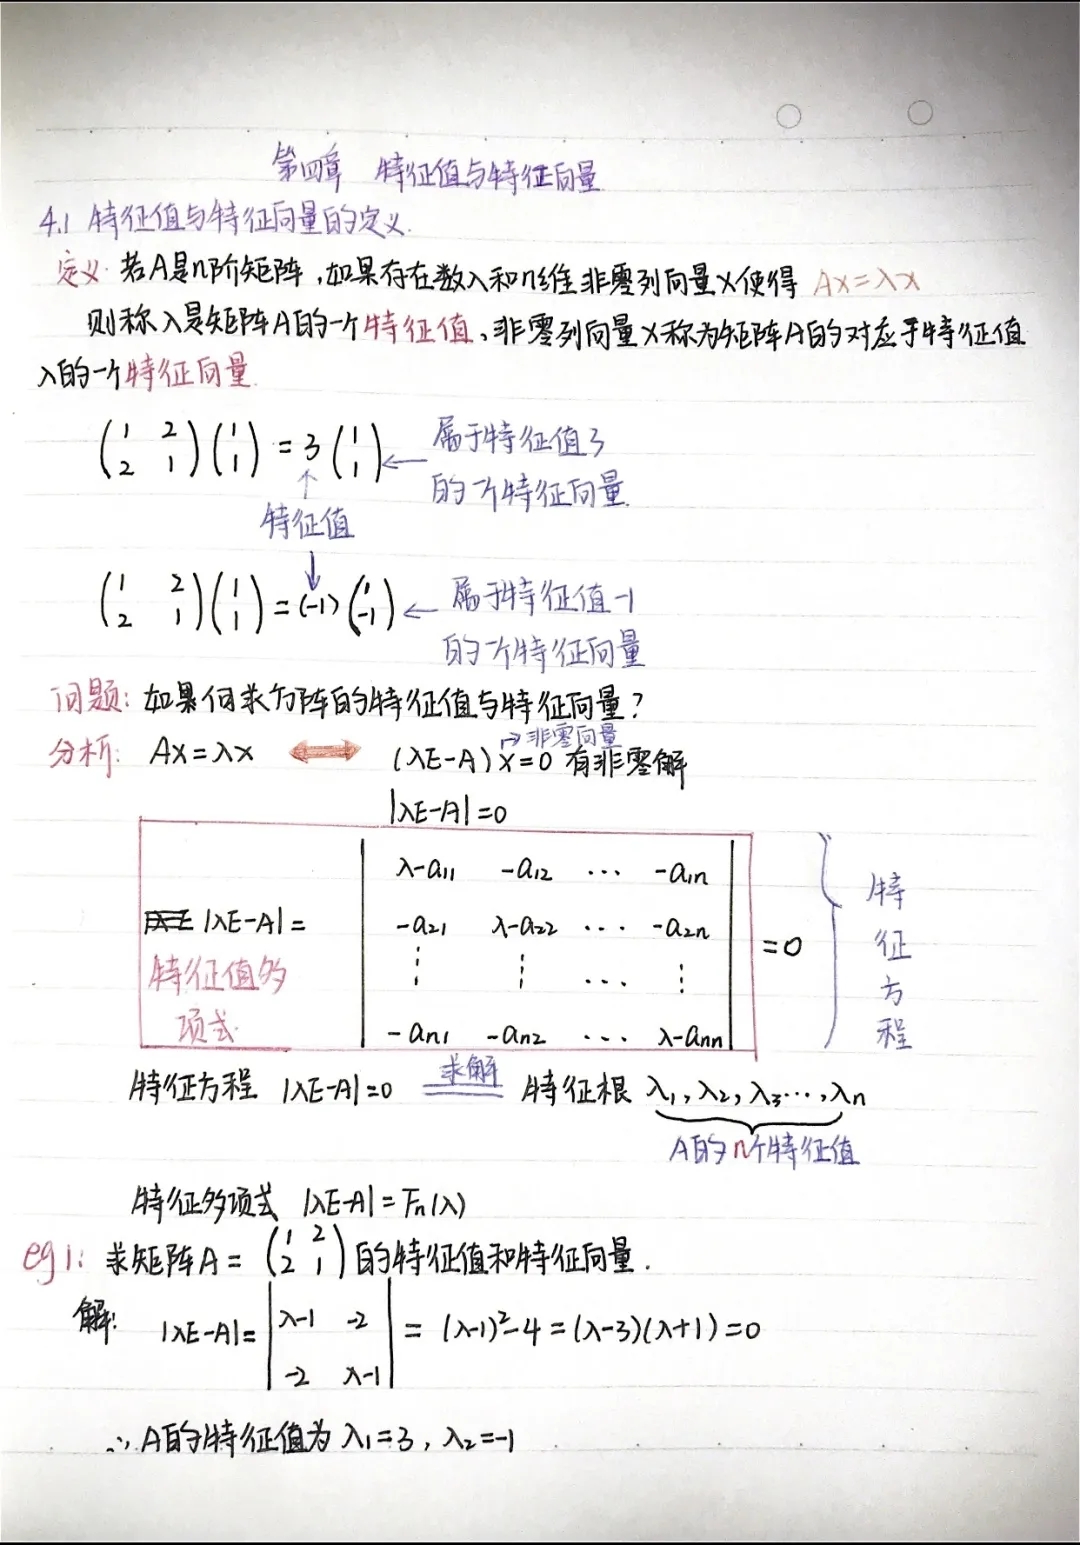 第四章 特征值与特征向量
4.1 特征值与特征向量的定义.
定义. 若A是n阶矩阵,如果存在数λ和n维非零列向量x使得 Ax=λx
则称λ是矩阵A的一个特征值,非零列向量x称为矩阵A的对应于特征值
λ的一个特征向量.
(1 2
2 1)(1
1) = 3(1
1) ← 属于特征值3
的一个特征向量.
↑
特征值
↓
(1 2
2 1)(1
1) = (-1)(1
-1) ← 属于特征值-1
的一个特征向量
问题: 如果何求方阵的特征值与特征向量?
分析: Ax=λx ⟺ (λE-A)x=0 有非零解
→非零向量
|λE-A|=0
|λE-A|= | λ-a11 -a12 ... -a1n
-a21 λ-a22 ... -a2n
⋮ ⋮ ... ⋮
-an1 -an2 ... λ-ann | =0
特征值多
项式.
特征方程
特征方程 |λE-A|=0 求解 特征根 λ1, λ2, λ3...,λn
A的n个特征值
特征多项式 |λE-A|=Fn(λ)
eg1: 求矩阵A=(1 2
2 1)的特征值和特征向量.
解: |λE-A|= | λ-1 -2
-2 λ-1 | = (λ-1)²-4=(λ-3)(λ+1)=0
∴ A的特征值为 λ1=3, λ2=-1